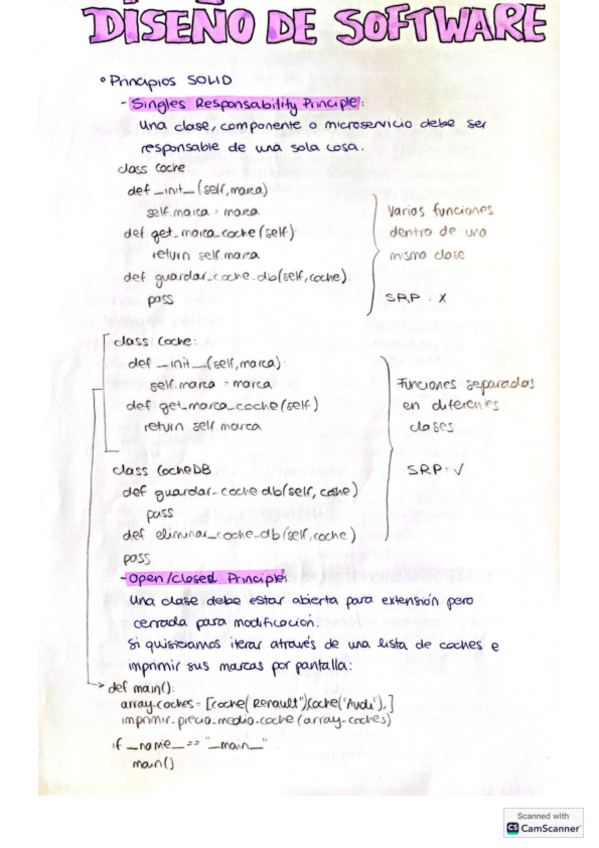 DISEÑO DE SOFTWARE
° Principios SOLID
- Singles Responsability Principle:
Una clase, componente o microservicio debe ser
responsable de una sola cosa.
class Coche
def _init_(self,marca)
self.marca = marca
def get_marca_coche(self)
return self.marca
def guardar_coche_db(self,coche):
pass
Varias funciones
dentro de una
misma clase
SRP. X
class Coche:
def _init_(self,marca):
self.marca = marca
def get_marca_coche(self)
return self.marca
class CocheDB
def guardar_coche db(self, coche)
pass
def eliminar_coche_db(self,coche)
pass
Funciones separadas
en diferentes
clases
SRP: √
- Open/Closed Principle:
Una clase debe estar abierta para extensión pero
cerrada para modificación.
Si quisieramos iterar através de una lista de coches e
imprimir sus marcas por pantalla:
def main():
array-coches = [coche("Renault")coche('Audi'),]
imprimir_precio_medio_coche (array_coches)
if _name_ == "_main_"
main()
Scanned with
CS CamScanner